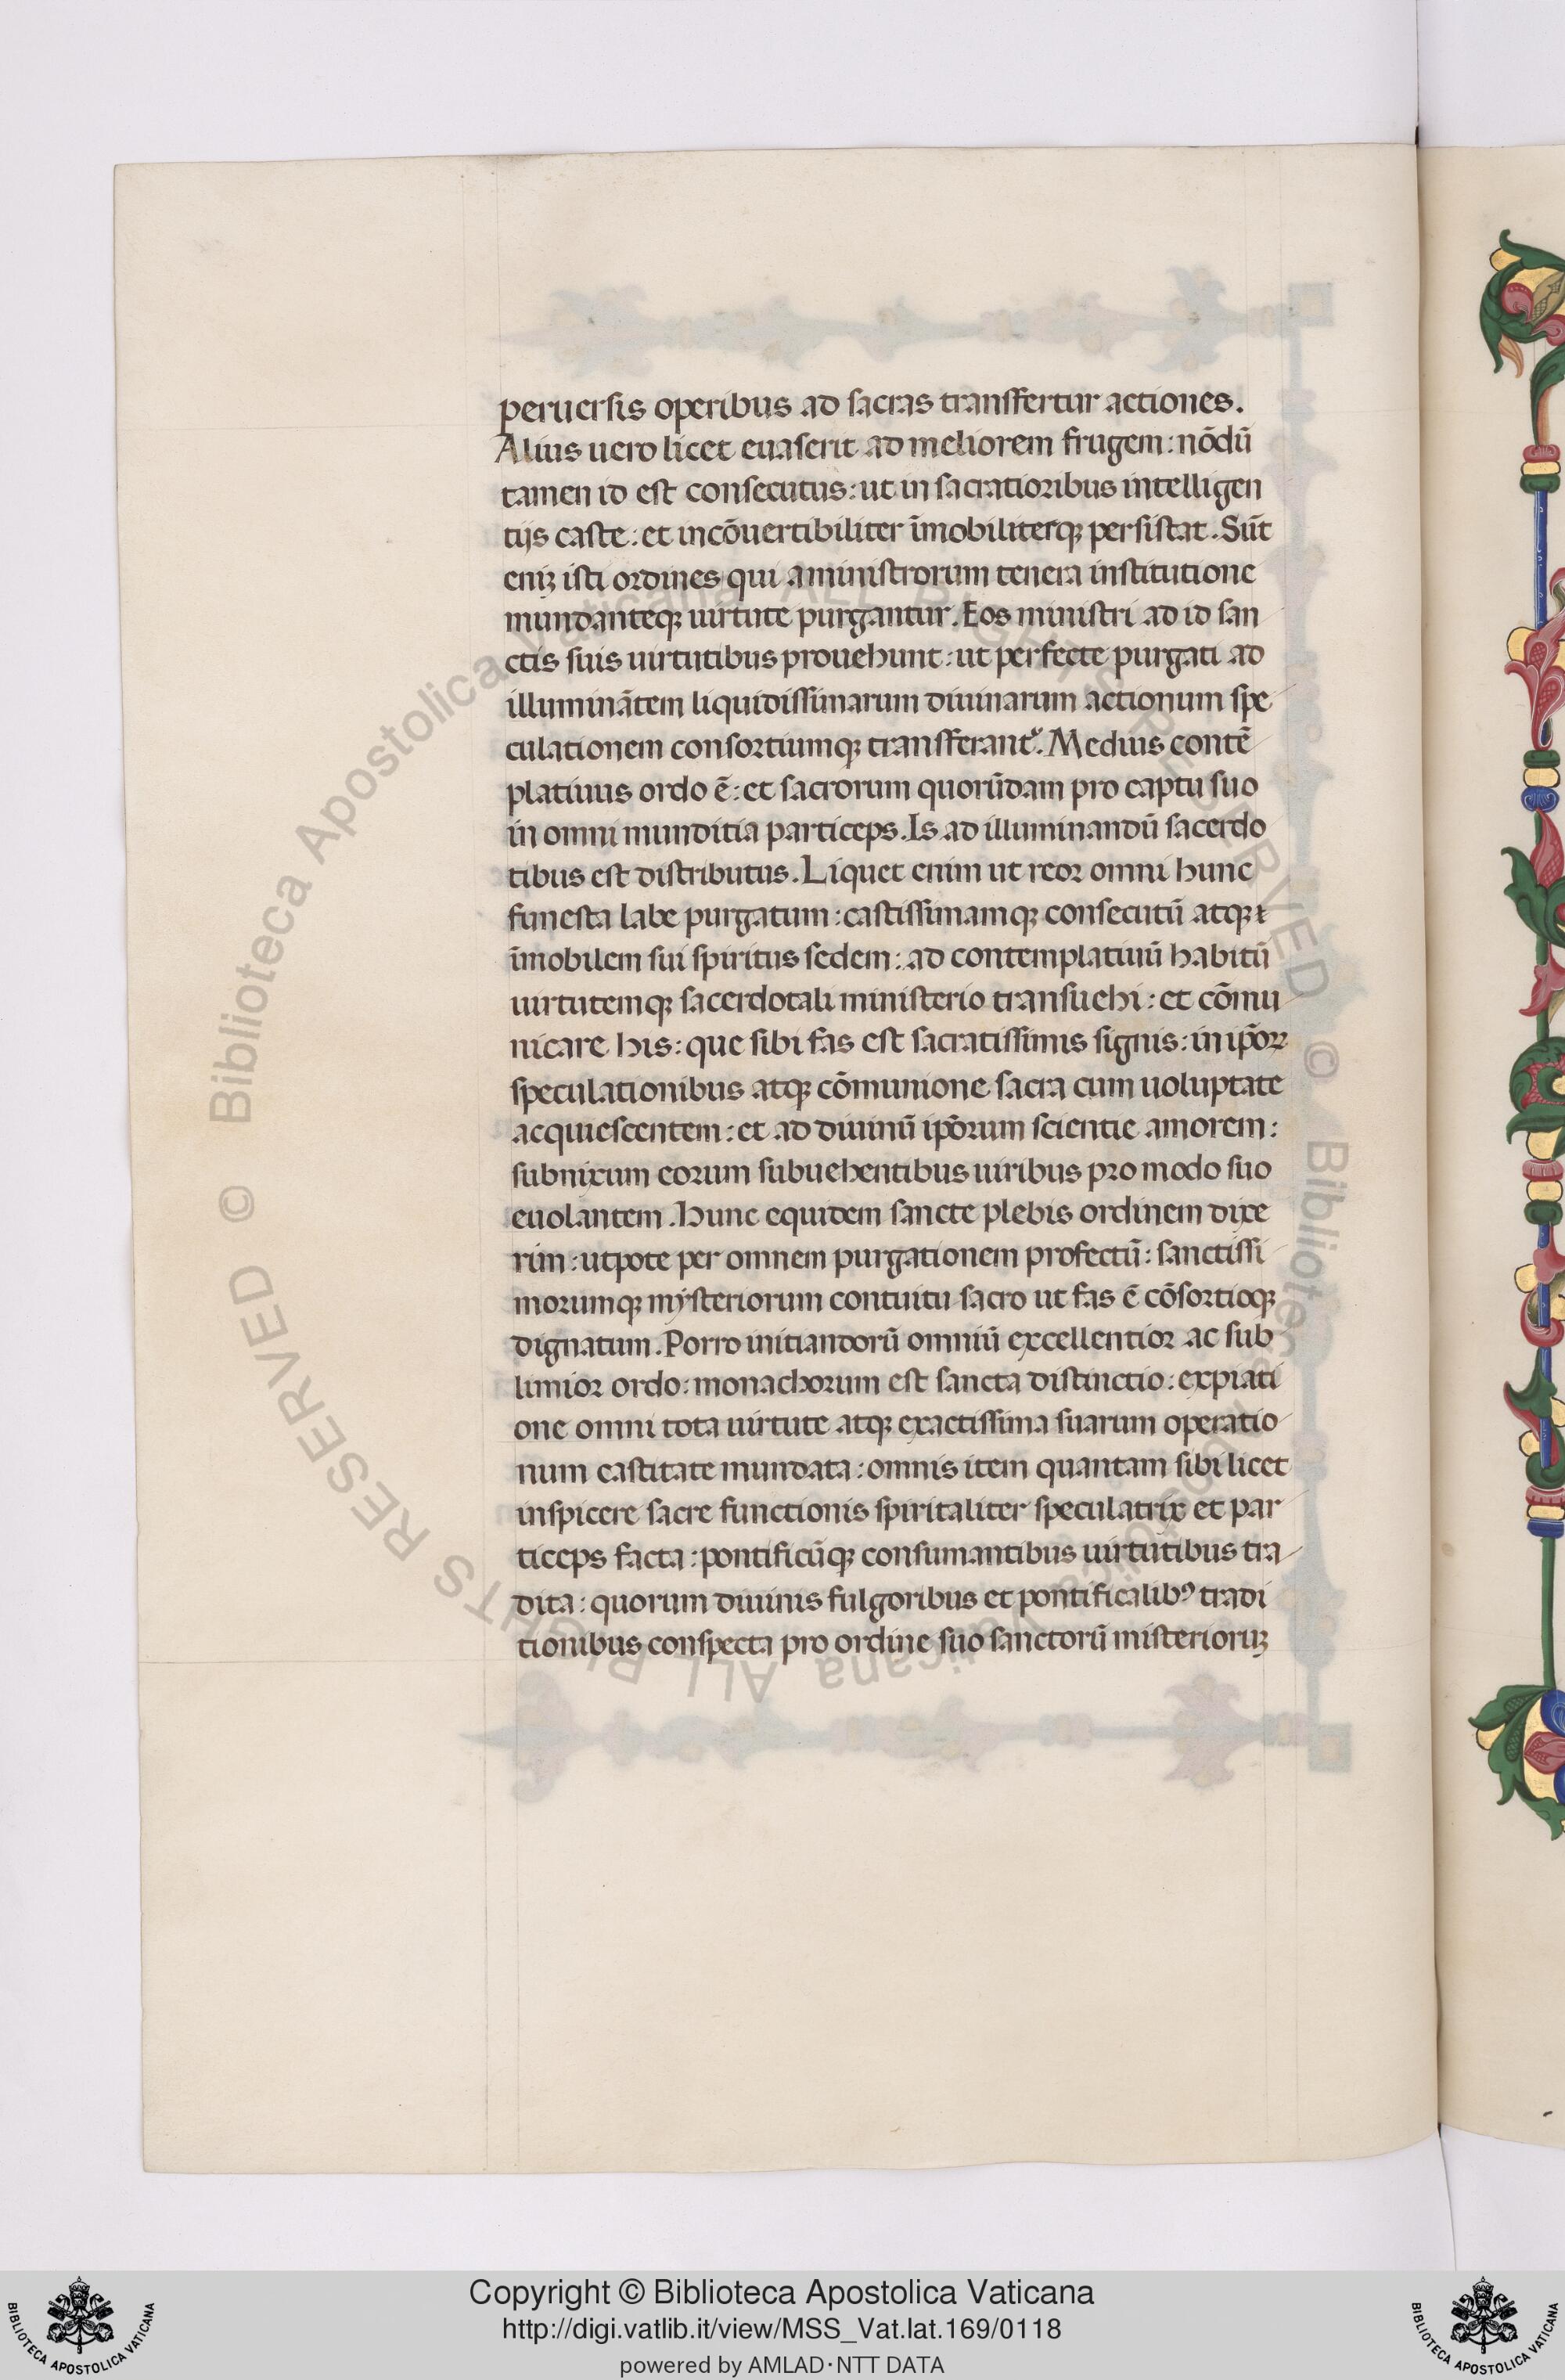 peruersis operibus ad sacras transffertur actiones.
Alius uero licet euaserit ad meliorem frugem: nōdū
tamen id est consecutus: ut in sacratioribus intelligen
tijs caste: et incōuertibiliter īmobiliterqꝫ persistat. Sūt
eniꝫ isti ordines qui aministrorum tenera institutione
mundanteqꝫ uirtute purgantur. Eos ministri ad id san
ctis suis uirtutibus prouehunt: ut perfecte purgati ad
illuminātem liquidissimarum diuinarum actionum spe
culationem consortiumqꝫ transfferant᷑. Medius contē
platiuus ordo ē: et sacrorum quorūdam pro captu suo
in omni munditia particeps. Is ad illuminandū sacerdo
tibus est distributus. Liquet enim ut reor omni hunc
funesta labe purgatum: castissimamqꝫ consecutū atqꝫ ⁊
īmobilem sui spiritus sedem: ad contemplatiuū habitū
uirtutemqꝫ sacerdotali ministerio transuehi: et cōmu
nicare his: que sibi fas est sacratissimis signis: in ip̄oꝝ
speculationibus atqꝫ cōmunione sacra cum uoluptate
acquiescentem: et ad diuinū ip̄orum scientie amorem:
subnixum eorum subuehentibus uiribus pro modo suo
euolantem. Hunc equidem sancte plebis ordinem dixe
rim: utpote per omnem purgationem profectū: sanctissi
morumqꝫ mysteriorum contuitu sacro ut fas ē cōsortioqꝫ
dignatum. Porro initiandorū omniū excellentior ac sub
limior ordo: monachorum est sancta distinctio: expiati
one omni tota uirtute atqꝫ exactissima suarum operatio
num castitate mundata: omnis item quantam sibi licet
inspicere sacre functionis spiritaliter speculatrix et par
ticeps facta: pontificūqꝫ consumantibus uirtutibus tra
dita: quorum diuinis fulgoribus et pontificalibꝰ tradi
tionibus conspecta pro ordine suo sanctorū misterioruꝫ
© Biblioteca Apostolica Vaticana ALL RIGHTS RESERVED © Biblioteca Apostolica Vaticana ALL RIGHTS RESERVED
Copyright © Biblioteca Apostolica Vaticana
http://digi.vatlib.it/view/MSS_Vat.lat.169/0118
powered by AMLAD·NTT DATA
BIBLIOTECA APOSTOLICA VATICANA
BIBLIOTECA APOSTOLICA VATICANA